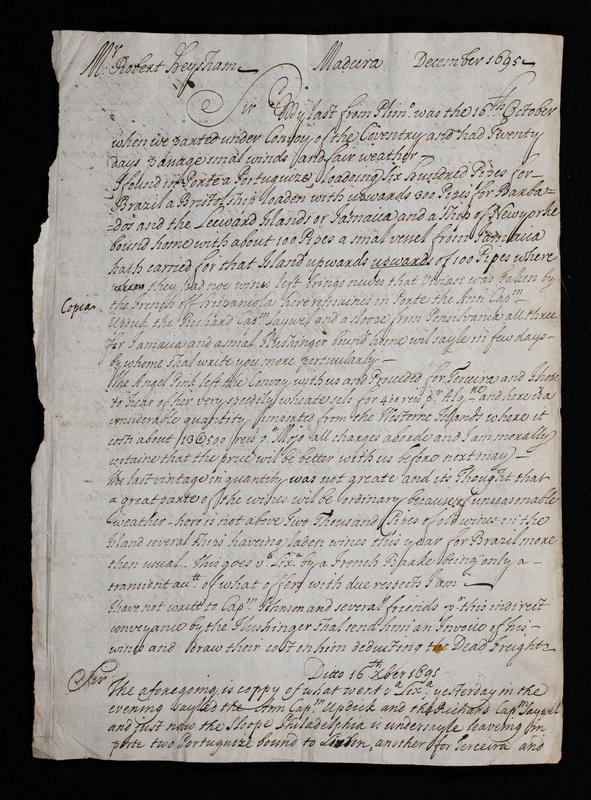 Mr Robert Heysham Madeira December 1695
Sir My last from Plimo was the 16th October
when we parted under Convoy of the Coventry and had Twenty
days passage smal winds and fair weather
I found in Porte a Portuguize loadeing six hundred Pipes for
Brazil a Bristol ship loaden with upwards 300 Pipes for Barba=
=dos and the Leeward Islands or Jamaica and a Sloop of Newyorke
bound home with about 100 Pipes a smal vessel from Jamaica
hath carried for that Island upwards upwards of 100 Pipes where
they had noe wine left brings newes that was taken by
Copia
the french of hispaniola here remaines in Porte the Ann Capn
Updick the Richard Capn Jaywel and a sloope from Pensilvania all three
for Jamaica and a smal Flushinger bound home wil sayle in few days
by whome Shal write you more particularly
The Angel Pink left the Convoy with us and Proceeded for Terceira and I hope
to hear of her very speedily wheate sels for 400 reis pr and here is a
considerable quantity imported from the Westerne Islands where it
costs about reis pr Mojo all charges aborde and I am morally
certaine that the price wil be better with us before next may
The last vintage in quantity was not greate and its Thought that
a greate parte of the wines wil be ordinary because of unseasonable
weather here is not above Two Thousand Pipes of old wines in the
Island several ships haveing laden wines this year for Brazil more
then usual. This goes va Lixa by a French Barke being only a
transient of what offers with due respects I am
I have not writt to Capn Johnson and several friends pr this indirect
conveyance by the Flushinger Shal send him an Invoice of his
wines and draw their cost on him deducting the Dead Freight
Ditto 16th Xber 1695
Sir
The aforegoing is coppy of what went va Lixa yesterday in the
evening sayled the Ann Capn Updick and the Richard Capn Jaywel
and just now the Sloope Philadelphia is undersayle leaveing in
porte two Portuguize bound to Lixbon, another for Terceira and